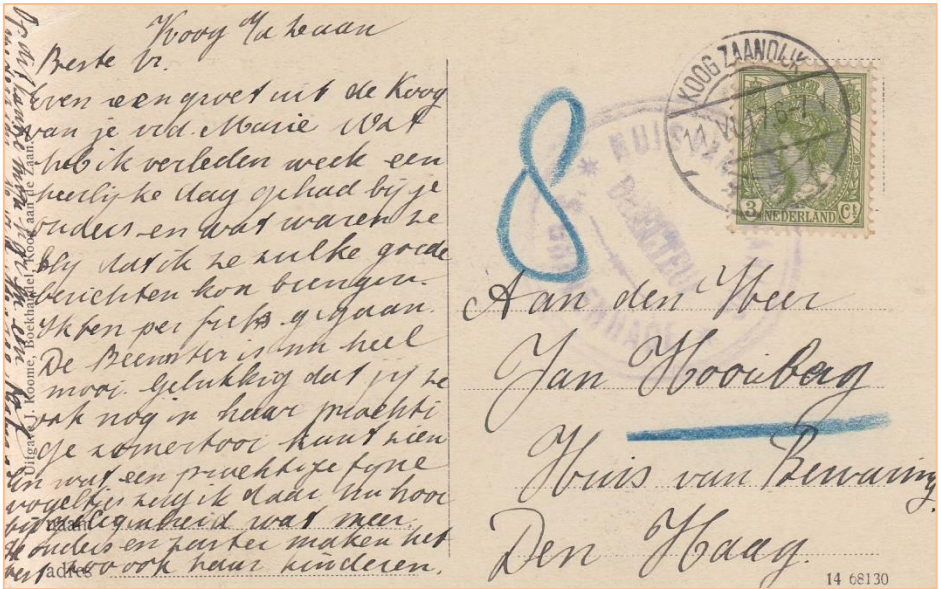 Koog a/d Zaan
Beste Vr.
Even een groet uit de Koog
van je vrd. Marie Wat
heb ik verleden week een
heerlijke dag gehad bij je
ouders en wat waren ze
bly dat ik ze zulke goede
berichten kon brengen.
Ik ben per fiets gegaan.
De Beemster is nu heel
mooi. Gelukkig dat jij ze
ook nog in haar prachti
ge zomertooi kunt zien
En wat een prachtige fijne
vogeltjes zag ik daar nu hoor
bij gelegenheid wat meer.
Je ouders en zuster maken het
best zoo ook haar kinderen.
Uitgave J. Koome, Boekhandel, Koog aan de Zaan.
naam
adres
8
KOOG ZAANDIJK
HUIS
DIRECTEUR
'S GRAVENHAGE
3 NEDERLAND Ct
Aan den Heer
Jan Hooiberg
Huis van Bewaring
Den Haag.
14 68130